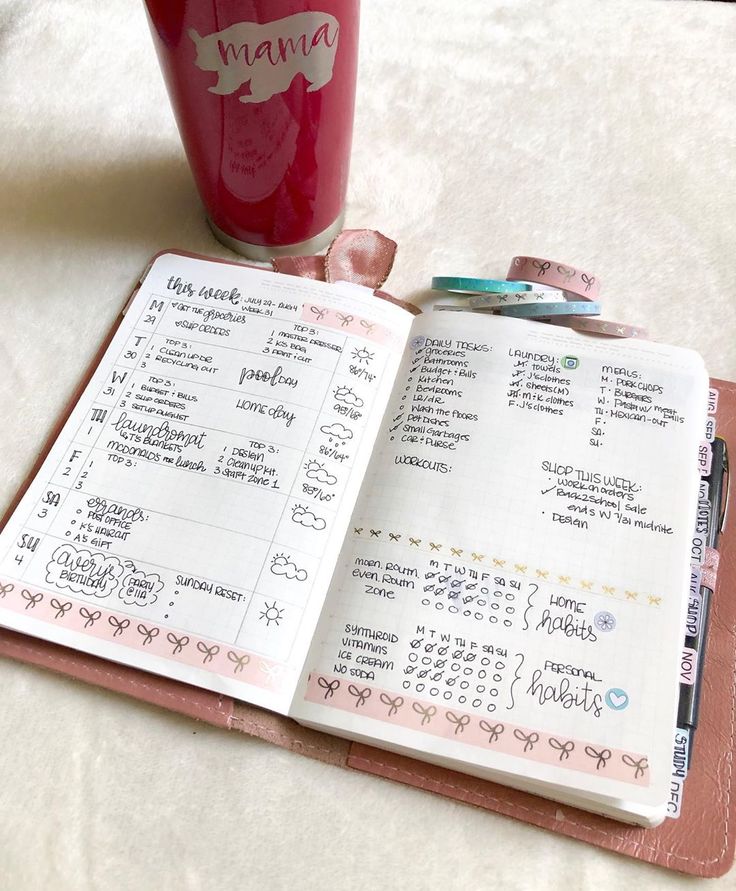 mama
this week: JULY 29 - AUG 4
WEEK 31
M
29
♡GET THE groceries
♡SLIP ORDERS
TOP 3:
1 MASTER DRESSER
2 K'S BAG
3 PRINT & CUT
86°/74°
T
30
TOP 3:
1 CLEAN UP DR
2
3 RECYCLING OUT
pool DAY
95°/68°
W
31
TOP 3:
1 BUDGET & BILLS
2 SLIP ORDERS
3 SETUP AUGUST
HOME DAY
86°/64°
TH
1
laundromat
↳ T'S BLANKETS
MCDONALDS FOR lunch
TOP 3:
1 DESIGN
2 CLEAN UP KIT.
3 START ZONE 1
85°/60°
F
2
TOP 3:
1
2
3
SA
3
errands:
○ POST OFFICE
○ K'S HAIRCUT
○ A'S GIFT
SU
4
avery's
BIRTHDAY
PARTY
@ 11A
SUNDAY RESET:
DAILY TASKS:
groceries
Bathrooms
Budget & Bills
Kitchen
Bedrooms
LR/DR
Wash the Floors
Pet Dishes
Small Garbages
Car & Purse
LAUNDRY:
M. towels
T. J's clothes
W. Sheets (M)
TH. M & K clothes
F. J's clothes
MEALS:
M. PORK CHOPS
T. BURGERS
W. Pasta w/ meat
TH. Mexican-out
F.
SA.
SU.
WORKOUTS:
SHOP THIS WEEK:
• WORK ON orders
Back 2 School sale
ends W 7/31 midnite
• DESIGN
M T W TH F SA SU
MORN. ROUTN.
EVEN. ROUTN
ZONE
HOME
habits
M T W TH F SA SU
SYNTHROID
VITAMINS
ICE CREAM
NO SODA
PERSONAL
habits
AUG
SEP
SEP
OCT
NOV
NOTES
AUG
SHOP
NOV
STUDY
DEC